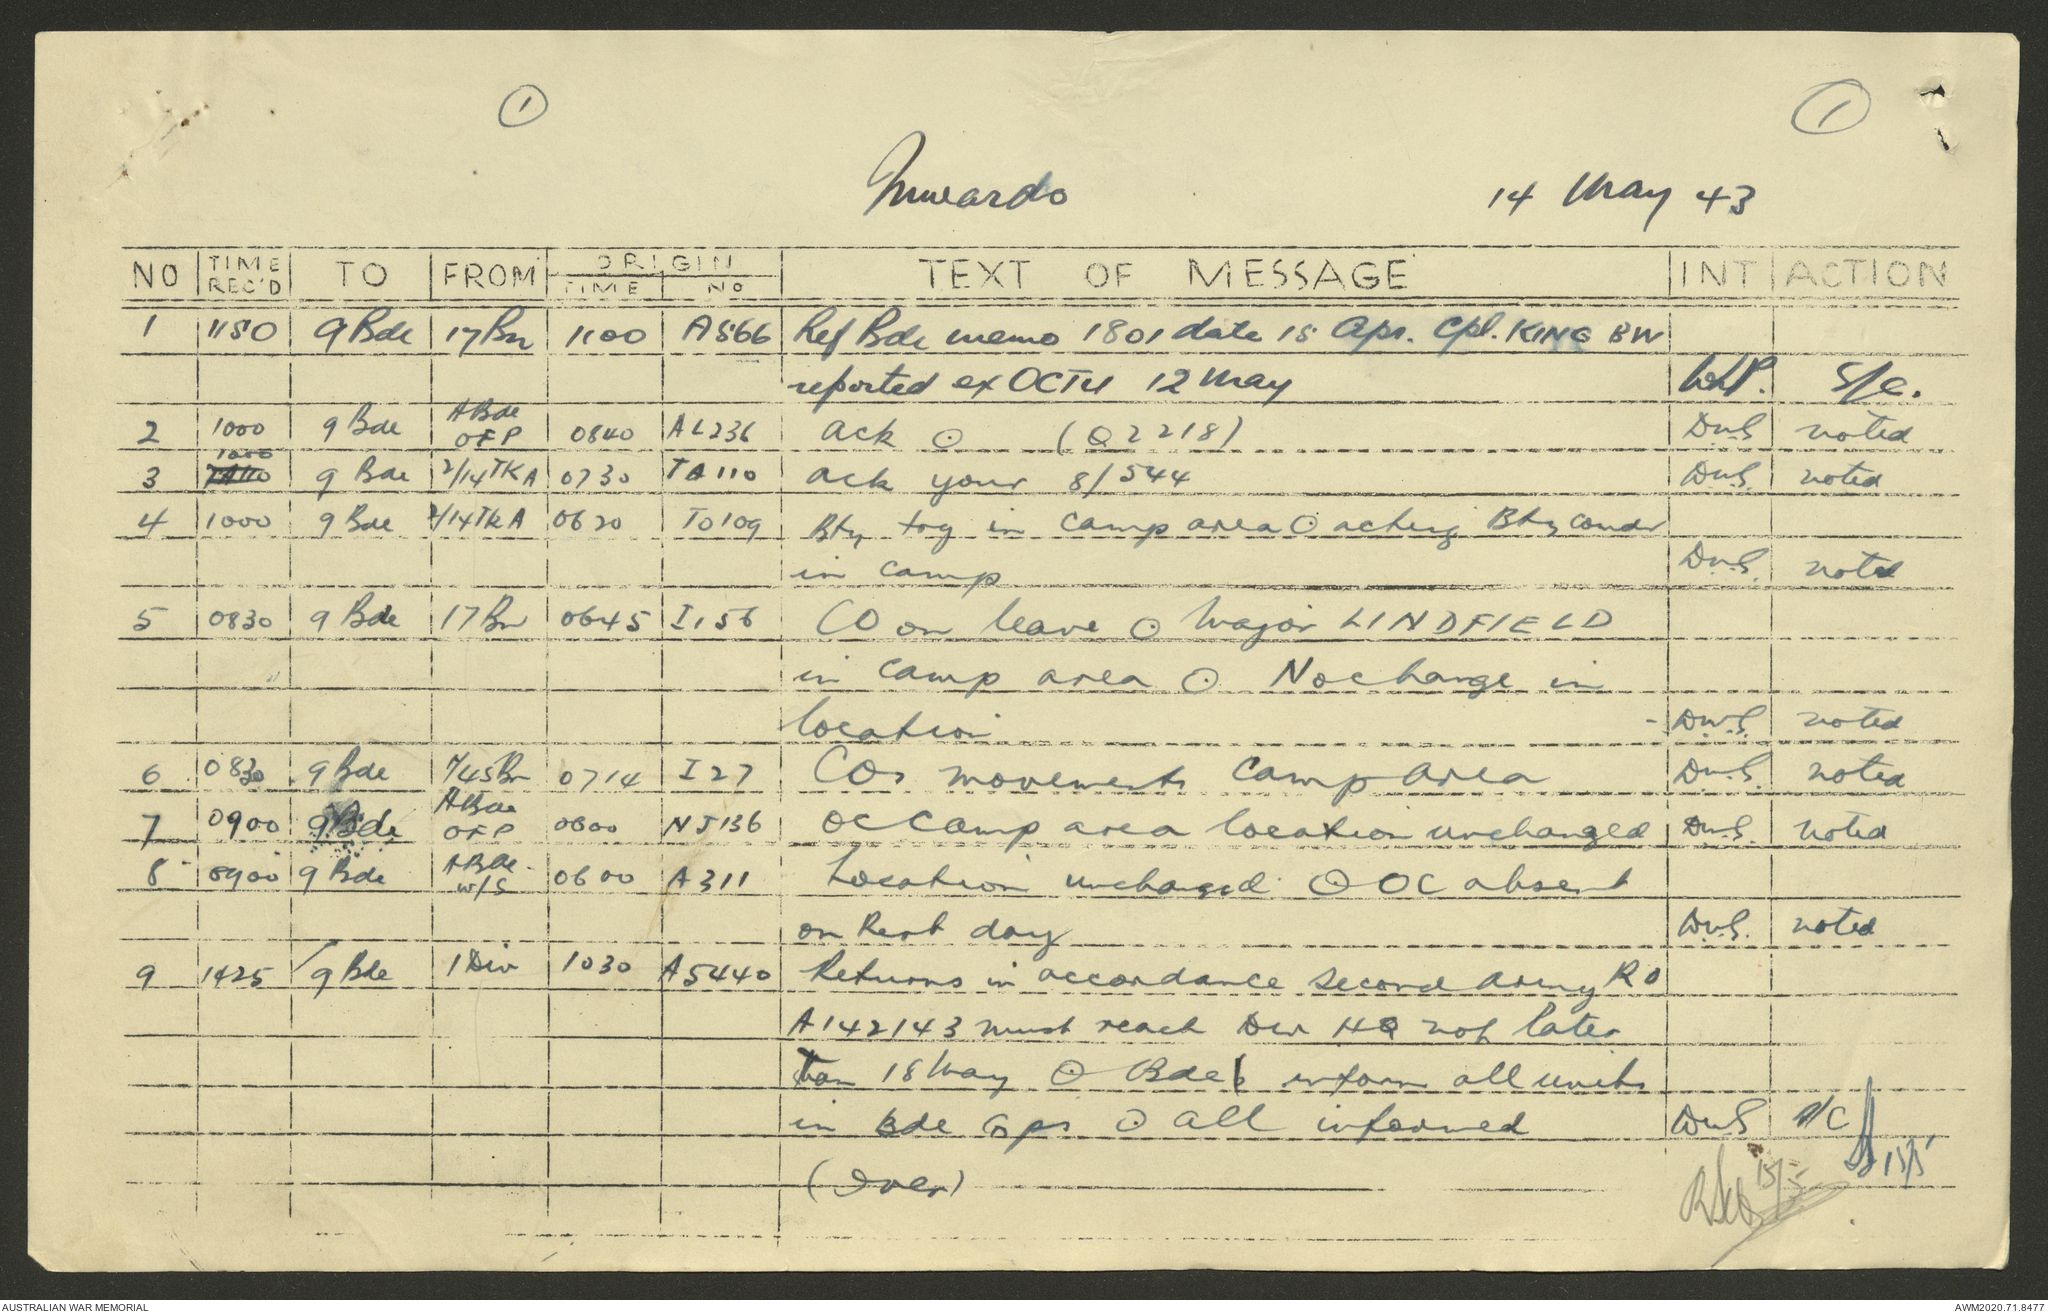 1
1
Inwards
14 May 43
NO | TIME REC'D | TO | FROM | ORIGIN TIME | ORIGIN NO | TEXT OF MESSAGE | INT | ACTION
1 | 1150 | 9 Bde | 17 Bn | 1100 | A566 | Ref Bde memo 1801 date 15 Apr. Cpl. KING BW
reported ex OCTU 12 May | WLP. | S/C.
2 | 1000 | 9 Bde | A Bde OFP | 0840 | AL236 | ack ⊙ (Q2218) | DWS | noted
3 | 1000 | 9 Bde | 2/14 TKA | 0730 | TO110 | ack your 8/544 | DWS. | noted
4 | 1000 | 9 Bde | 2/14 TkA | 0620 | TO109 | Bty trg in camp area ⊙ acting Bty Comdr
in camp | DWS. | noted
5 | 0830 | 9 Bde | 17 Bn | 0645 | I156 | CO on leave ⊙ Major LINDFIELD
in camp area ⊙ No change in
location | DWS | noted
6 | 0830 | 9 Bde | 1/45 Bn | 0714 | I27 | COs movements Camp area | DWS | noted
7 | 0900 | 9 Bde | A Bde OFP | 0800 | NJ136 | OC Camp area location unchanged | DWS. | noted
8 | 0900 | 9 Bde | A Bde W/S | 0600 | A311 | Location unchanged ⊙ OC absent
on Rest day | DWS. | noted
9 | 1425 | 9 Bde | 1 Div | 1030 | A5440 | Returns in accordance Second Army RO
A142143 must reach Div HQ not later
than 18 May ⊙ Bdes inform all units
in Bde Gps ⊙ all informed | DWS | A/C
15/5
15/5
(Over)
AUSTRALIAN WAR MEMORIAL
AWM2020.71.8477